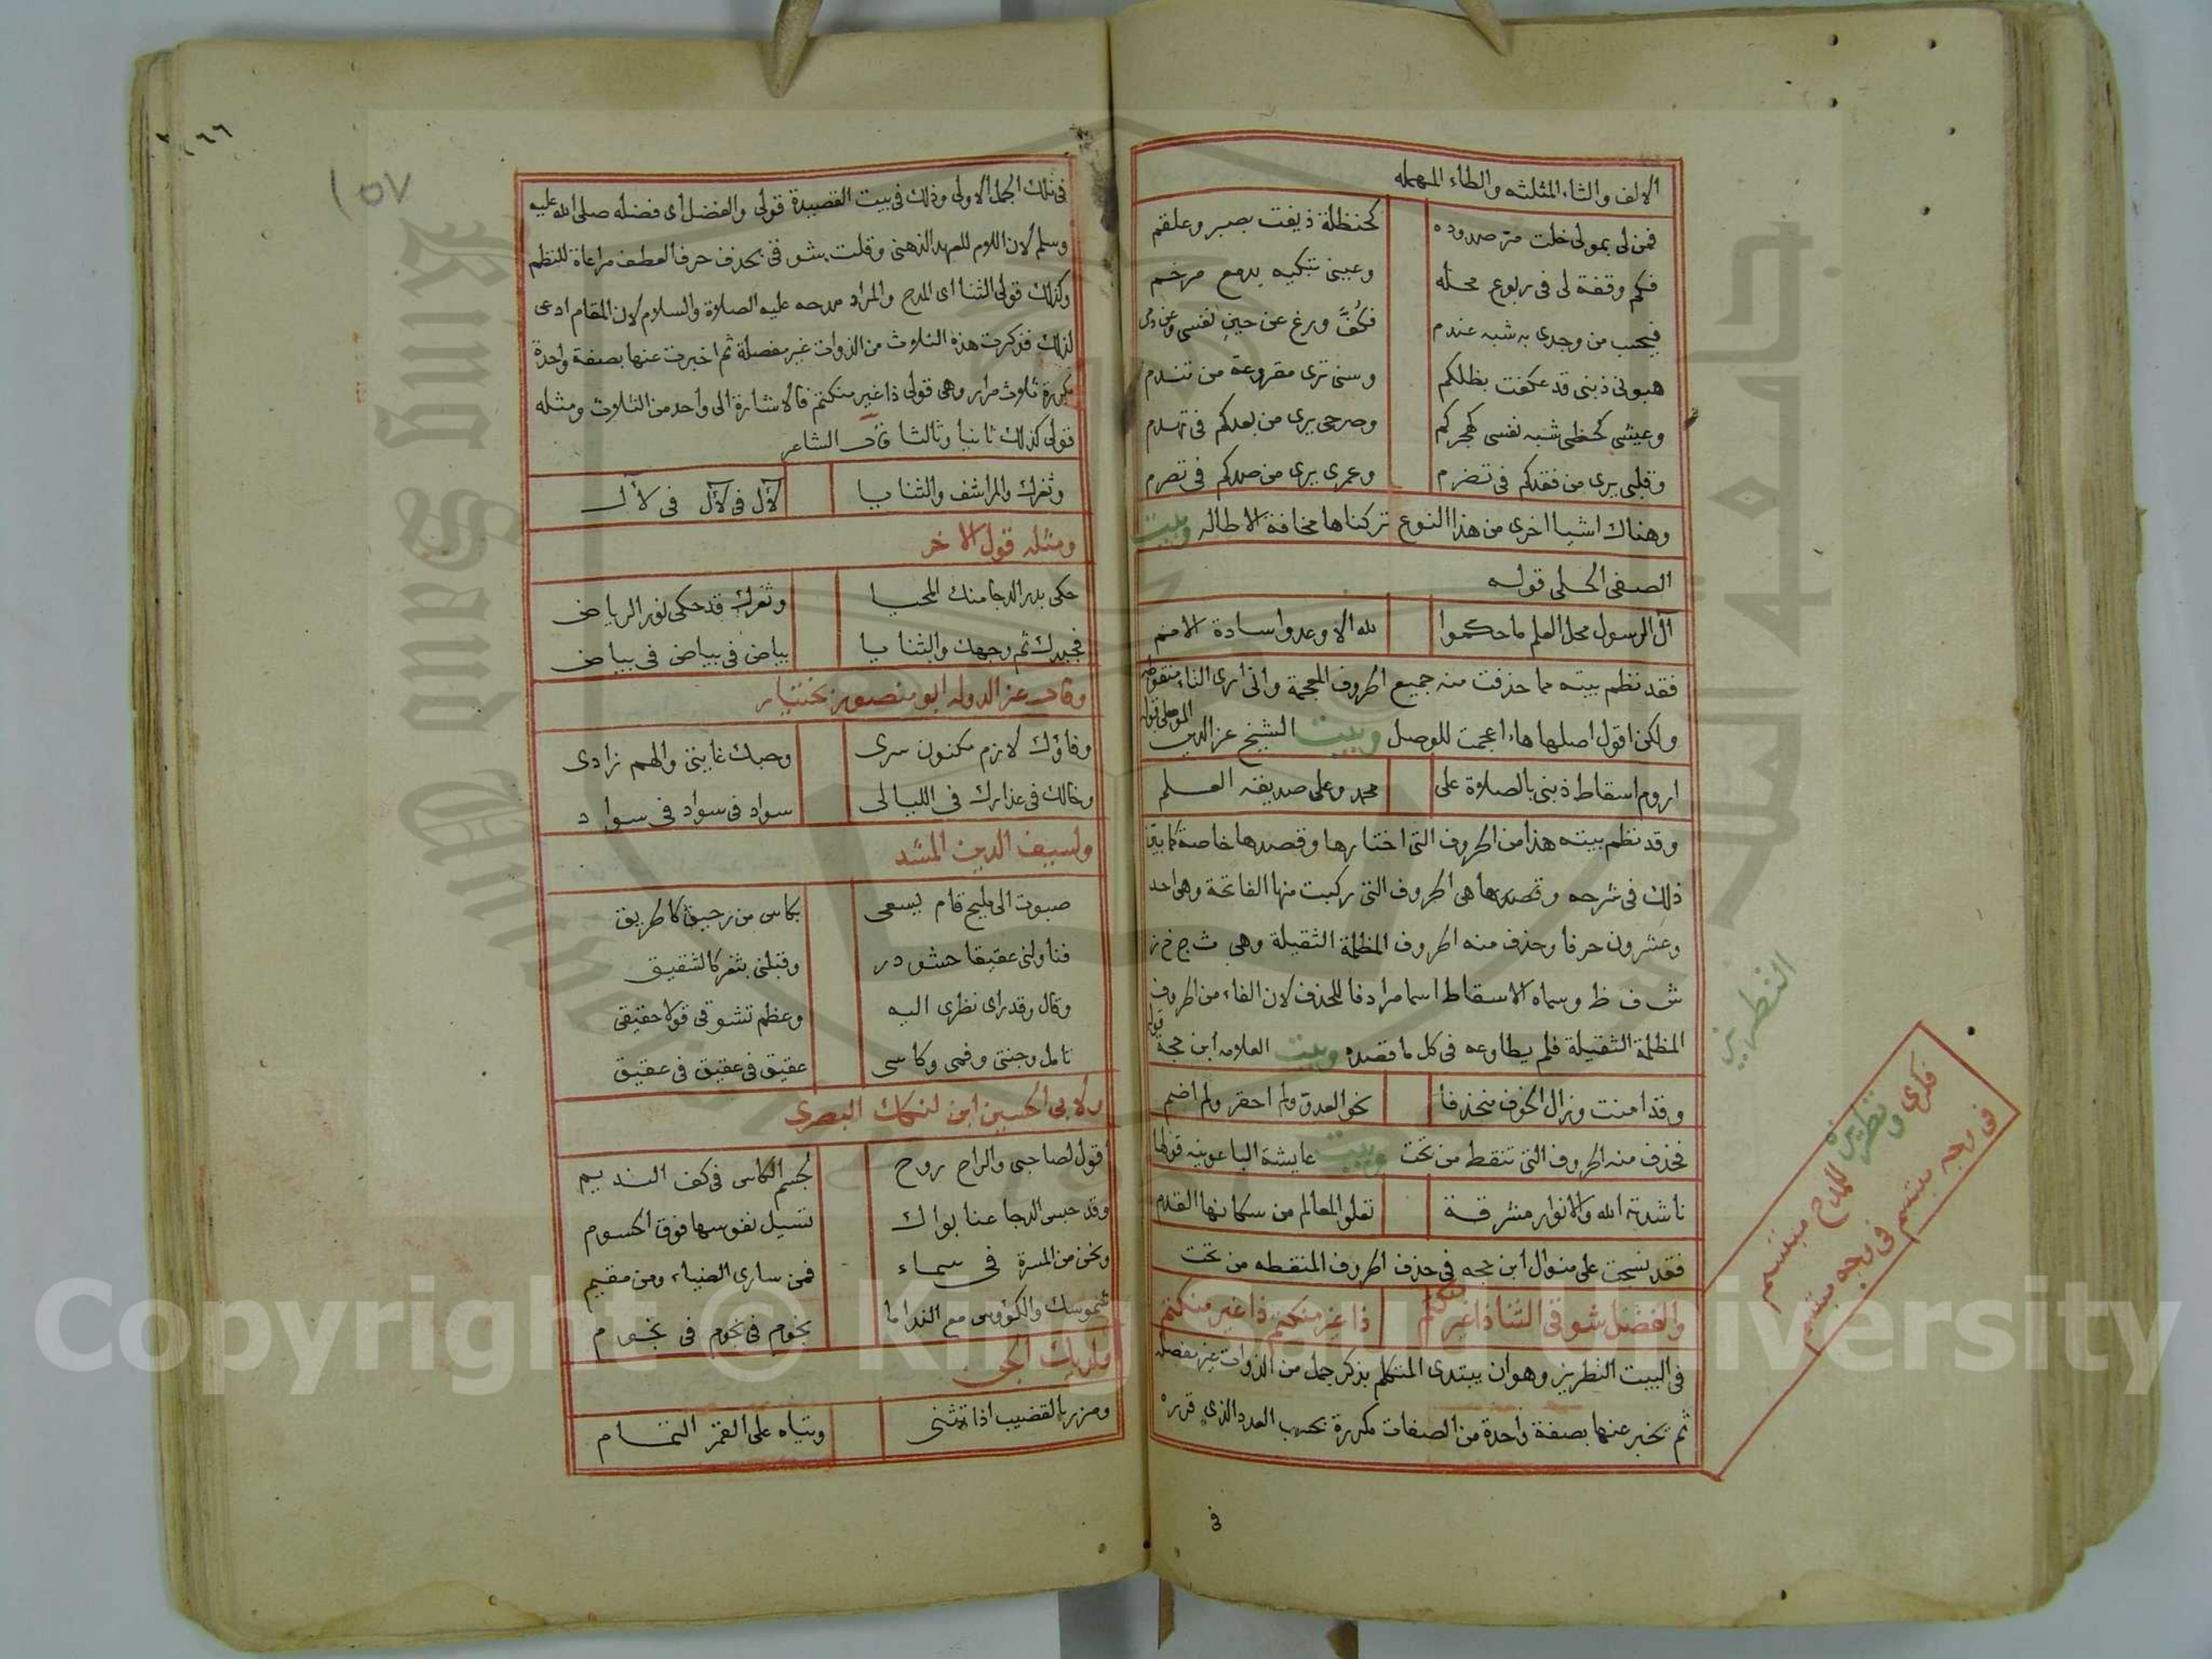 الالف والثاء المثلثه والطاء المهمله
فمن لى بمولى خلت مر صدوده كحنظلة ذيفت بصبر وعلقم
فكم وقفة لى فى ربوع محله وعينى تبكيه بدمع مرخم
فيحب من وجدى به شبه عندم
هبونى ذنبى قد عكفت بظلكم وسنى ترى مقروعة من تندم
وعيشى كحظى شبه نفسى كهجركم وصرحى يرى من بعدكم فى تهدم
وقلبى يرى من فقدكم فى تضرم وعمرى يرى من صدكم فى تصرم
وهناك اشيا اخرى من هذا النوع تركناها مخافة الاطاله وبيت
الصفى الحلى قوله
آل الرسول محل العلم ما حكموا لله الا وعدوا سادة الامم
فقد نظم بيته مما حذفت منه جميع الحروف المعجمة وانى ارى التاء منقوطه
ولكن اقول اصلها هاء اعجمت للوصل وبيت الشيخ عز الدين الموصلى قوله
اروم اسقاط ذنبى بالصلاة على محمد وعلى صديقه العلم
وقد نظم بيته هذا من الحروف التى اختارها وقصدها خاصة كما بين
ذلك فى شرحه وقصدها هى الحروف التى ركبت منها الفاتحة وهى احد
وعشرون حرفا وحذف منه الحروف المظلمة الثقيلة وهى ث ج خ ز
ش ف ظ وسماه الاسقاط اسما مرادفا للحذف لان الفاء من الحروف
المظلمة الثقيلة فلم يطاوعه فى كل ما قصده وبيت العلامه ابن حجة قوله
وقد امنت وزال الخوف منحذفا نحو العدو ولم احقر ولم اضم
فحذف منه الحروف التى تنقط من تحت وبيت عايشة الباعونيه قولها
ناشدته الله والانوار مشرقة تعلو المعالم من سكانها القدم
فقد نسجت على منوال ابن حجه فى حذف الحروف المنقطه من تحت
والفضل شوقى الثنا ذا غير منكتم ذا غير منكتم ذا غير منكتم
فى البيت التطريز وهو ان يبتدى المتكلم بذكر جمل من الذوات غير مفصله
ثم يخبر عنها بصفة واحدة من الصفات مكررة بحسب العدد الذى قرره
فى
التطريز
فكرى وتطريزه للمدح مبتسم
فى وجه مبتسم فى وجه مبتسم
١٥٧
فى تلك الجمل الاولى وذلك فى بيت القصيدة قولى والفضل اى فضله صلى الله عليه
وسلم لان اللام للعهد الذهنى وقلت شوقى بحذف حرف العطف مراعاة للنظم
وكذلك قولى الثنا اى المدح والمراد مدحه عليه الصلاة والسلام لان المقام ادعى
لذلك فذكرت هذه الثلاث من الذوات غير مفصلة ثم اخبرت عنها بصفة واحدة
مكررة ثلاث مرار وهى قولى ذا غير منكتم فالاشارة الى واحد من الثلاث ومثله
قولى كذلك ثانيا وثالثا قال الشاعر
وثغرك والمراشف والثنايا لآل فى لآل فى لآل
ومثله قول الاخر
حكى بدر الدجا منك المحيا وثغرك قد حكى نور الرياض
فجيدك ثم وجهك والثنايا بياض فى بياض فى بياض
وقال عز الدوله ابو منصور بختيار
وفاؤك لازم مكنون سرى وحبك غايتى والهم زادى
وخالك فى عذارك فى الليالى سواد فى سواد فى سواد
ولسيف الدين المشد
صبوت الى مليح قام يسعى بكاس من رحيق كالحريق
فناولنى عقيقا حشو در وقبلنى بثغر كالشقيق
وقال وقد راى نظرى اليه وعظم تشوقى قولا حقيقى
تامل وجنتى وفمى وكاسى عقيق فى عقيق فى عقيق
ولابى الحسين ابن لنكك البصرى
اقول لصاحبى والراح روح لجسم الكاس فى كف النديم
وقد حبس الدجا عنا بواك تسيل نفوسها فوق الجسوم
ونحن من المسرة فى سماء فمن سارى الضياء ومن مقيم
شموسك والكؤوس مع الندا ما نجوم فى نجوم فى نجوم
ومزر بالقضيب اذا تثنى وتياه على القمر التمام